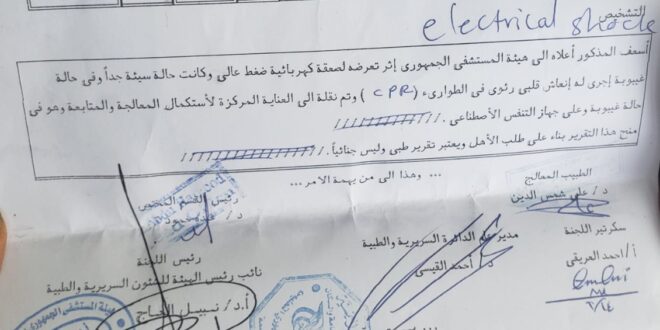 التشخيص
electrical shock
أسعف المذكور أعلاه الى هيئة المستشفى الجمهورى إثر تعرضه لصعقة كهربائية ضغط عالى وكانت حالة سيئة جداً وفى حالة
غيبوبة إجرى له إنعاش قلبي رئوى فى الطوارىء ( CPR ) وتم نقلة الى العناية المركزة لأستكمال المعالجة والمتابعة وهو فى
حالة غيبوبة وعلى جهاز التنفس الأصطناعى .
منح هذا التقرير بناء على طلب الأهل ويعتبر تقرير طبى وليس جنائياً .
... وهذا الى من يهمة الامر ...
الطبيب المعالج
د/ على شمس الدين
رئيس القسم المختص
سكرتير اللجنة
أ/ احمد العريقى
مدير عام الدائرة السريرية والطبية
د/ أحمد القيسى
رئيس اللجنة
نائب رئيس الهيئة للشئون السريرية والطبية
أ.د/ نبيل الحاج